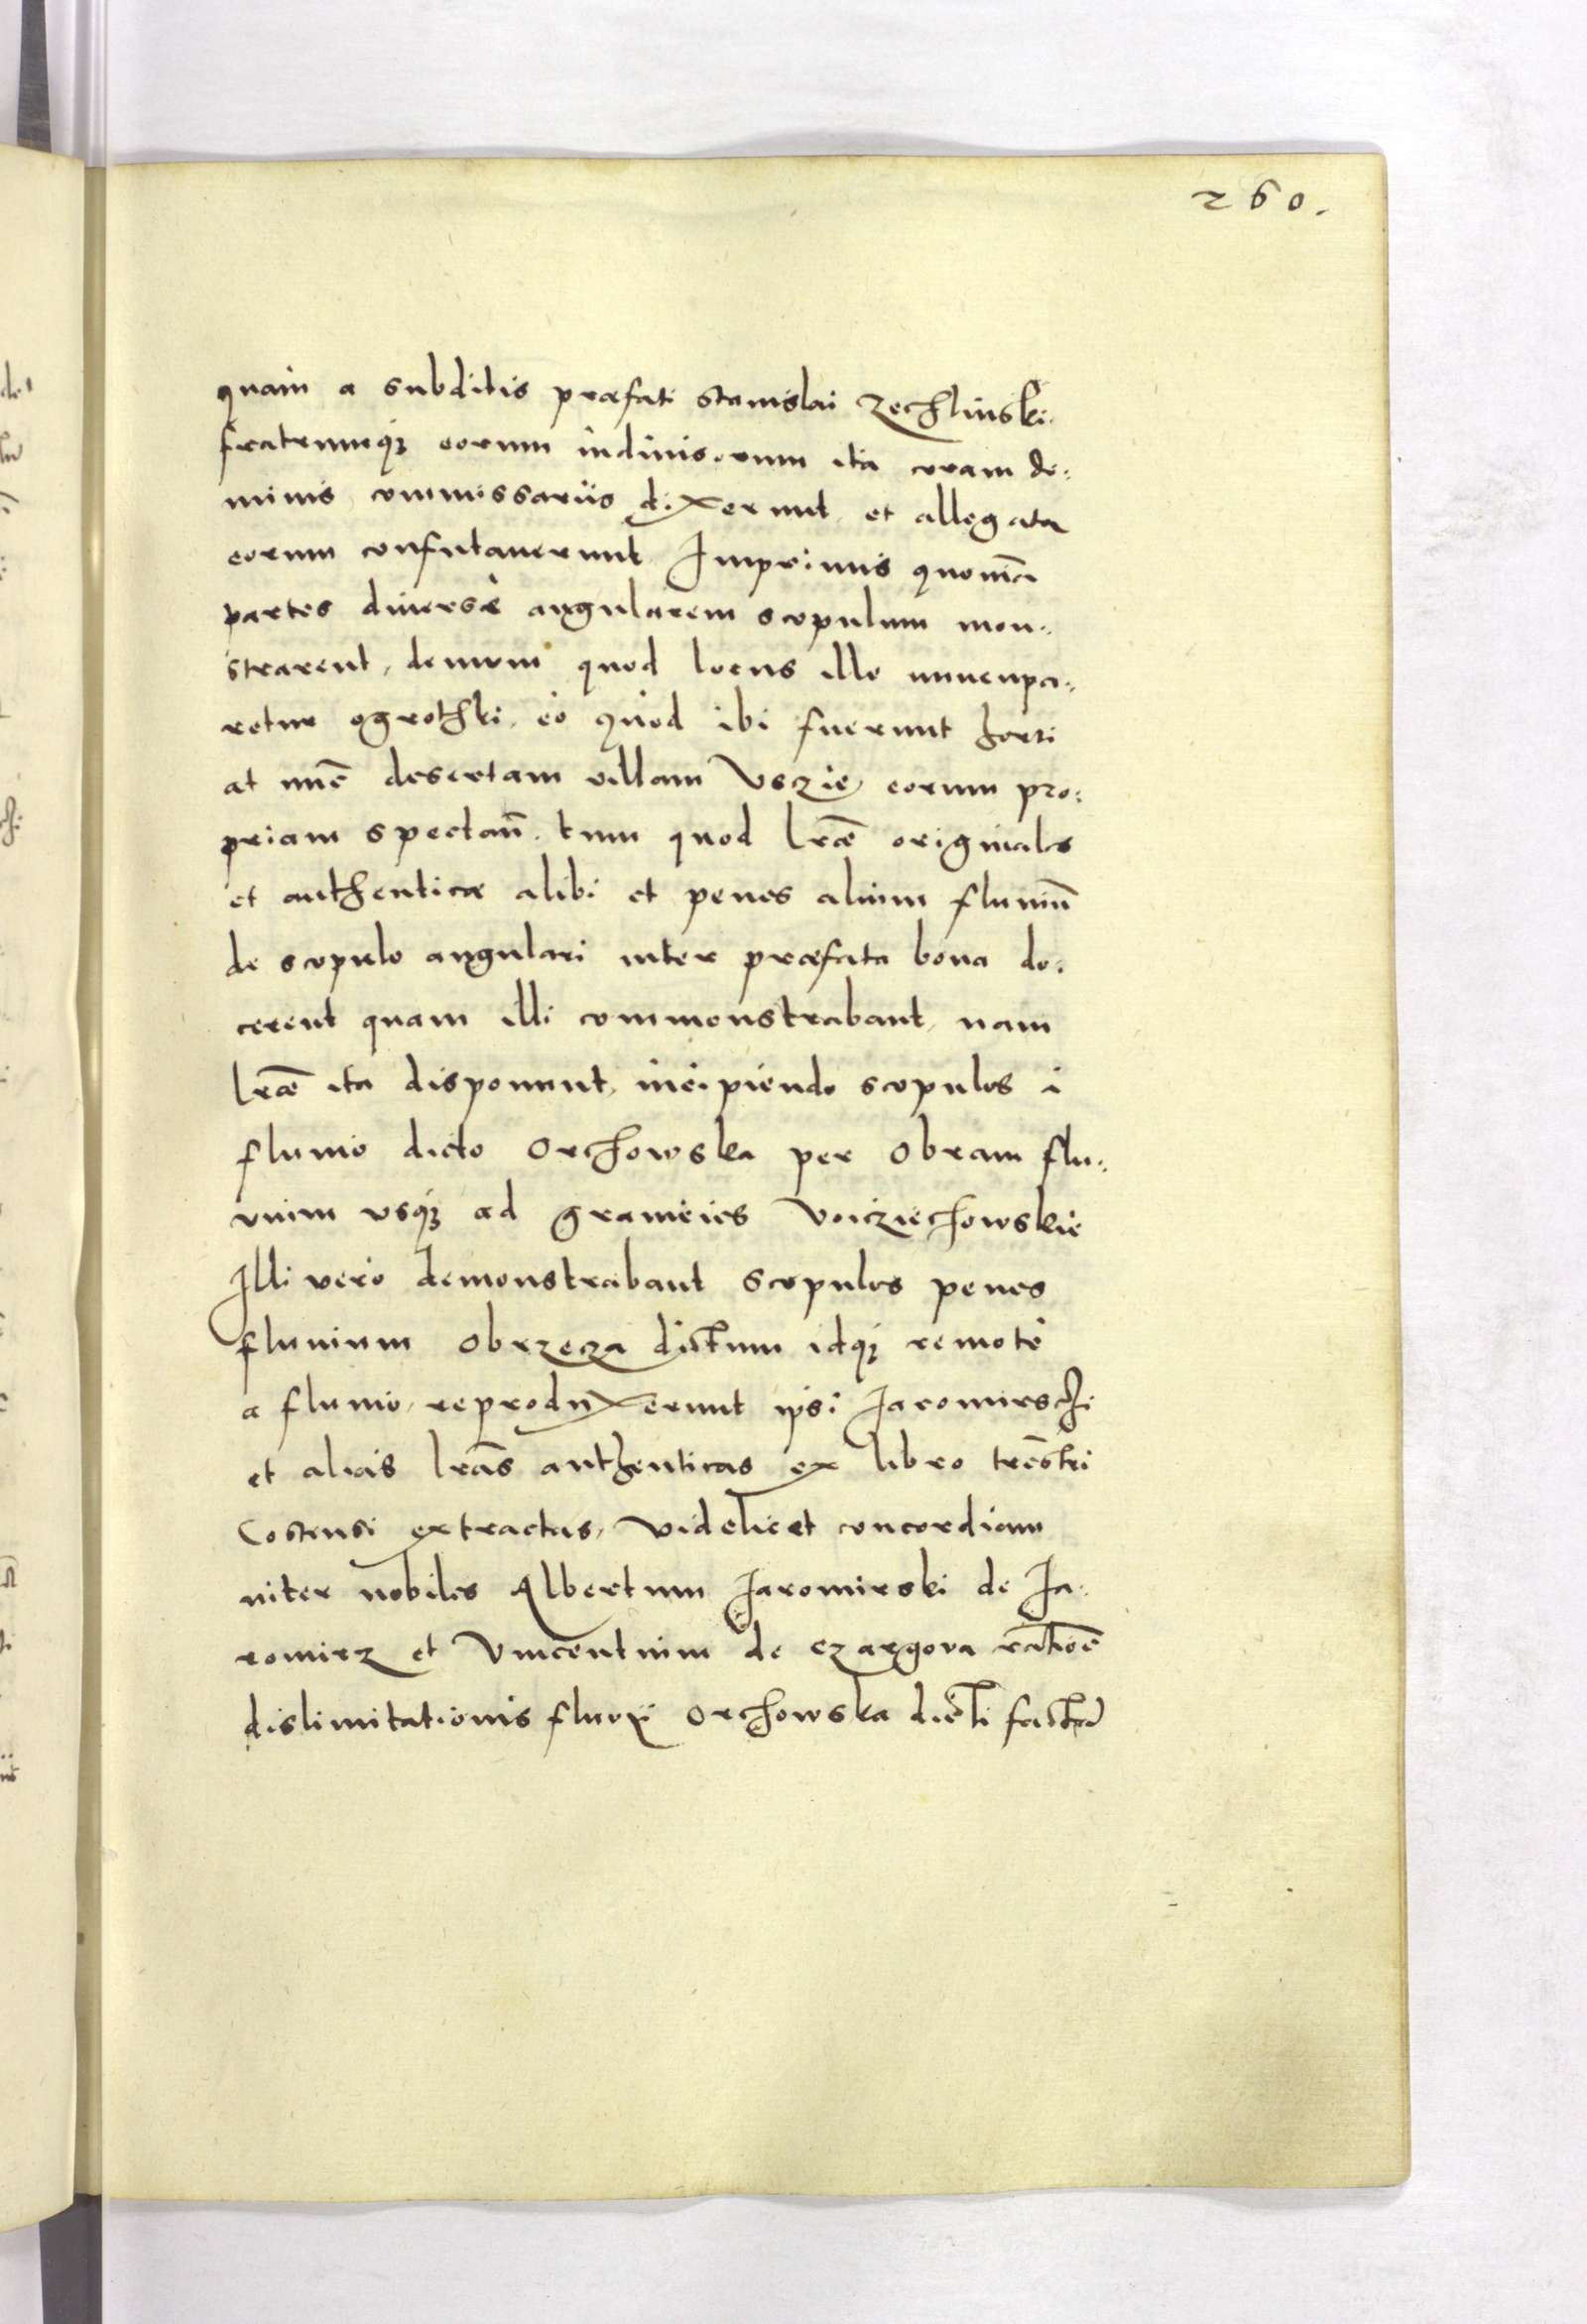 260.
quam a subditis præfati Stanislai Zechlinski.
fratrumq3 eorum indiuisorum ita coram do:
minis commissariis dixerunt, et allegata
eorum confutauerunt Imprimis quonia
partes diuersæ angularem scopulum mon:
strarent, demum quod locus ille nuncupa:
retur ogrothki, eo quod ibi fuerunt horti
at nūc desertam villam Vsczie eorum pro:
priam spectañ. tum quod lr̃æ originales
et authenticæ alibi et penes alium fluuiū
de scopulo angulari inter præfata bona do:
cerent quam illi commonstrabant, nam
lr̃æ ita disponunt, incipiendo scopulos i
fluuio dicto Orchowska per Obram flu:
uium vsq3 ad granicies Voiciechowskie
Illi vero demonstrabant scopulos penes
fluuium Obrzecza dictum idq3 remote
a fluuio, reproduxerunt ipsi Jaromirschi
et alias lr̃as authenticas ex libro tr̄estri
Costensi extractas, videlicet concordiam
inter nobiles Albertum Jaromirski de Ja:
romirz et Vincentium de Czargova ratiōe
dislimitationis fluuii Orchowska dicti